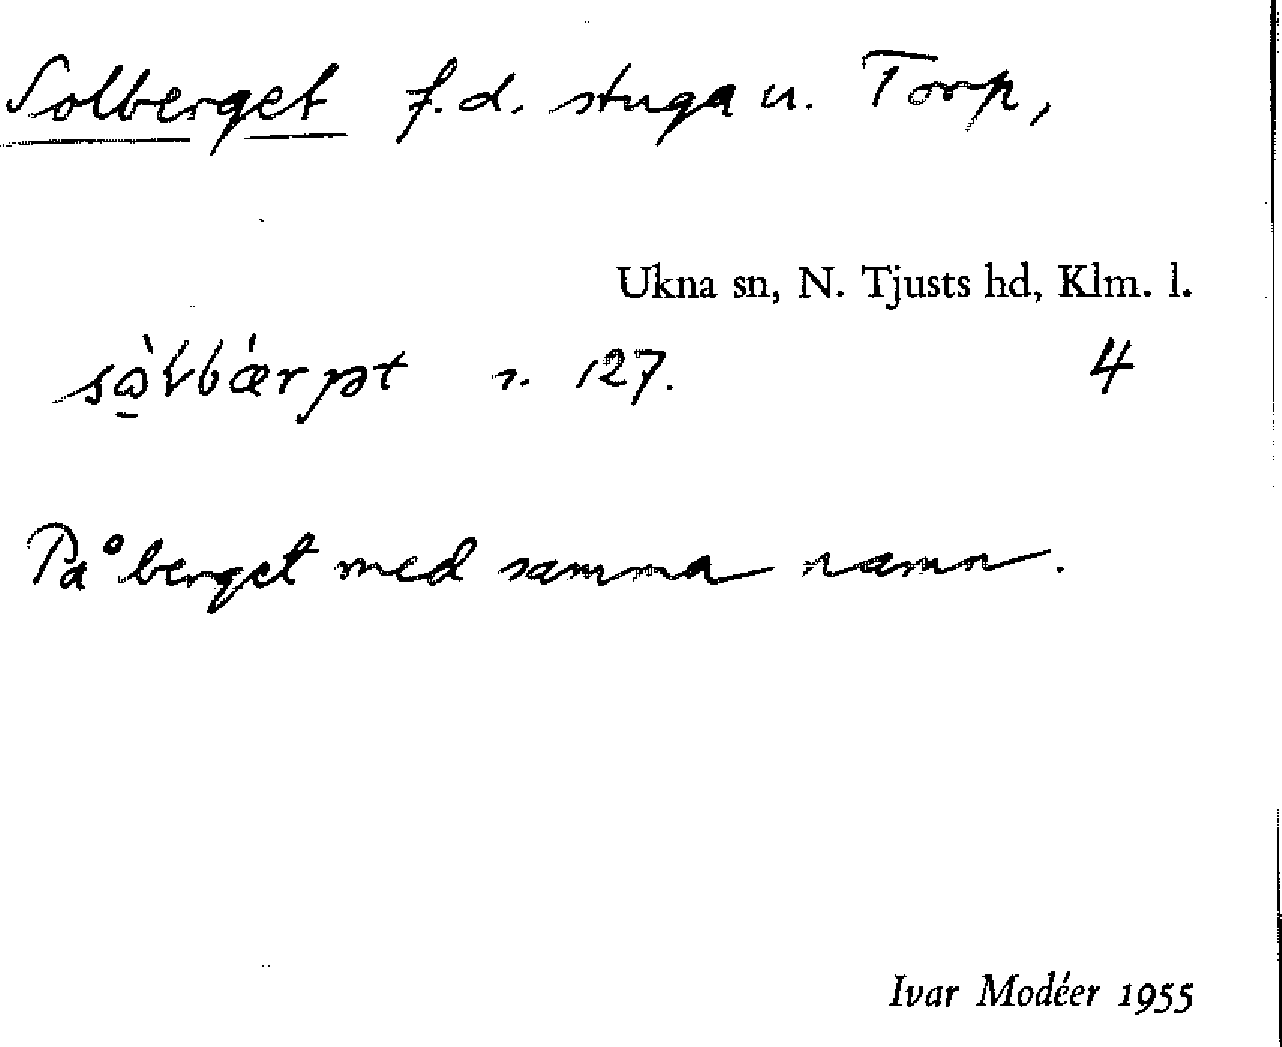 Solberget f.d. stuga u. Torp,
Ukna sn, N. Tjusts hd, Klm. l.
127. 4
På berget med samma namn.
Ivar Modéer 1955